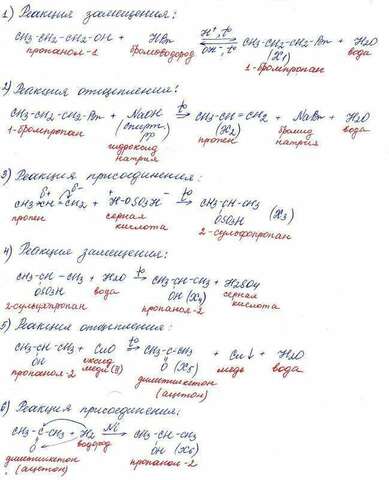 1) Реакция замещения:
H⁺, t°
CH3-CH2-CH2-OH + HBr ⇄ CH3-CH2-CH2-Br + H2O
OH⁻, t° (X1)
пропанол-1 бромоводород 1-бромпропан вода
2) Реакция отщепления:
CH3-CH2-CH2-Br + NaOH t° → CH3-CH=CH2 + NaBr + H2O
1-бромпропан (спирт. р-р) (X2) пропен бромид натрия вода
гидроксид натрия
3) Реакция присоединения:
δ+ δ-
CH3-CH=CH2 + H-OSO3H t° → CH3-CH-CH3
OSO3H (X3)
пропен серная кислота 2-сульфопропан
4) Реакция замещения:
CH3-CH-CH3 + H2O t° → CH3-CH-CH3 + H2SO4
OSO3H OH (X4)
2-сульфопропан вода пропанол-2 серная кислота
5) Реакция отщепления:
CH3-CH-CH3 + CuO t° → CH3-C-CH3 + Cu↓ + H2O
OH O (X5)
пропанол-2 оксид меди (II) диметилкетон (ацетон) медь вода
6) Реакция присоединения:
CH3-C-CH3 + H2 Ni → CH3-CH-CH3
O OH (X6)
диметилкетон (ацетон) водород пропанол-2